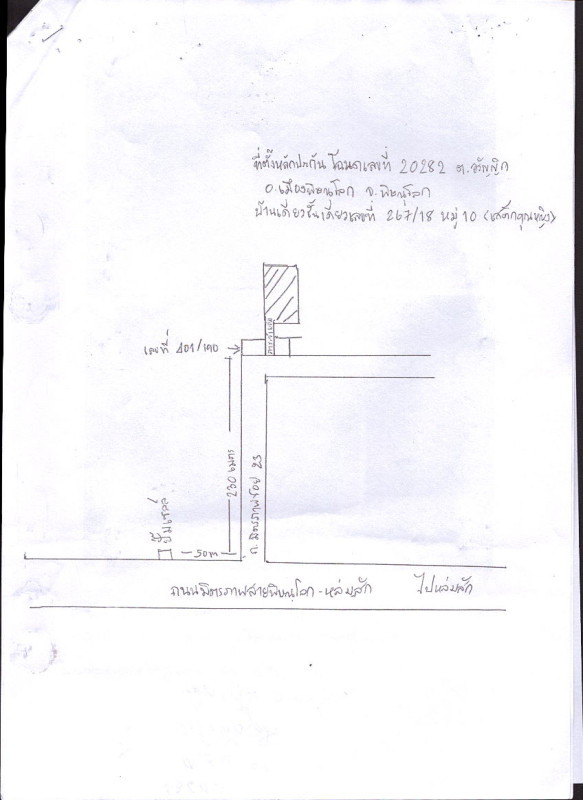 ที่ตั้งหลักประกัน โฉนดเลขที่ 20282 ต.อรัญญิก
อ.เมืองพิษณุโลก จ.พิษณุโลก
บ้านเดี่ยวชั้นเดียวเลขที่ 267/18 หมู่ 10 (สเต็กคุณหญิง)
เลขที่ 401/120
ภาระจำยอม
230 เมตร
ถ.มิตรภาพซอย 23
ปั๊มเชลล์
50m
ถนนมิตรภาพสายพิษณุโลก-หล่มสัก ไปหล่มสัก